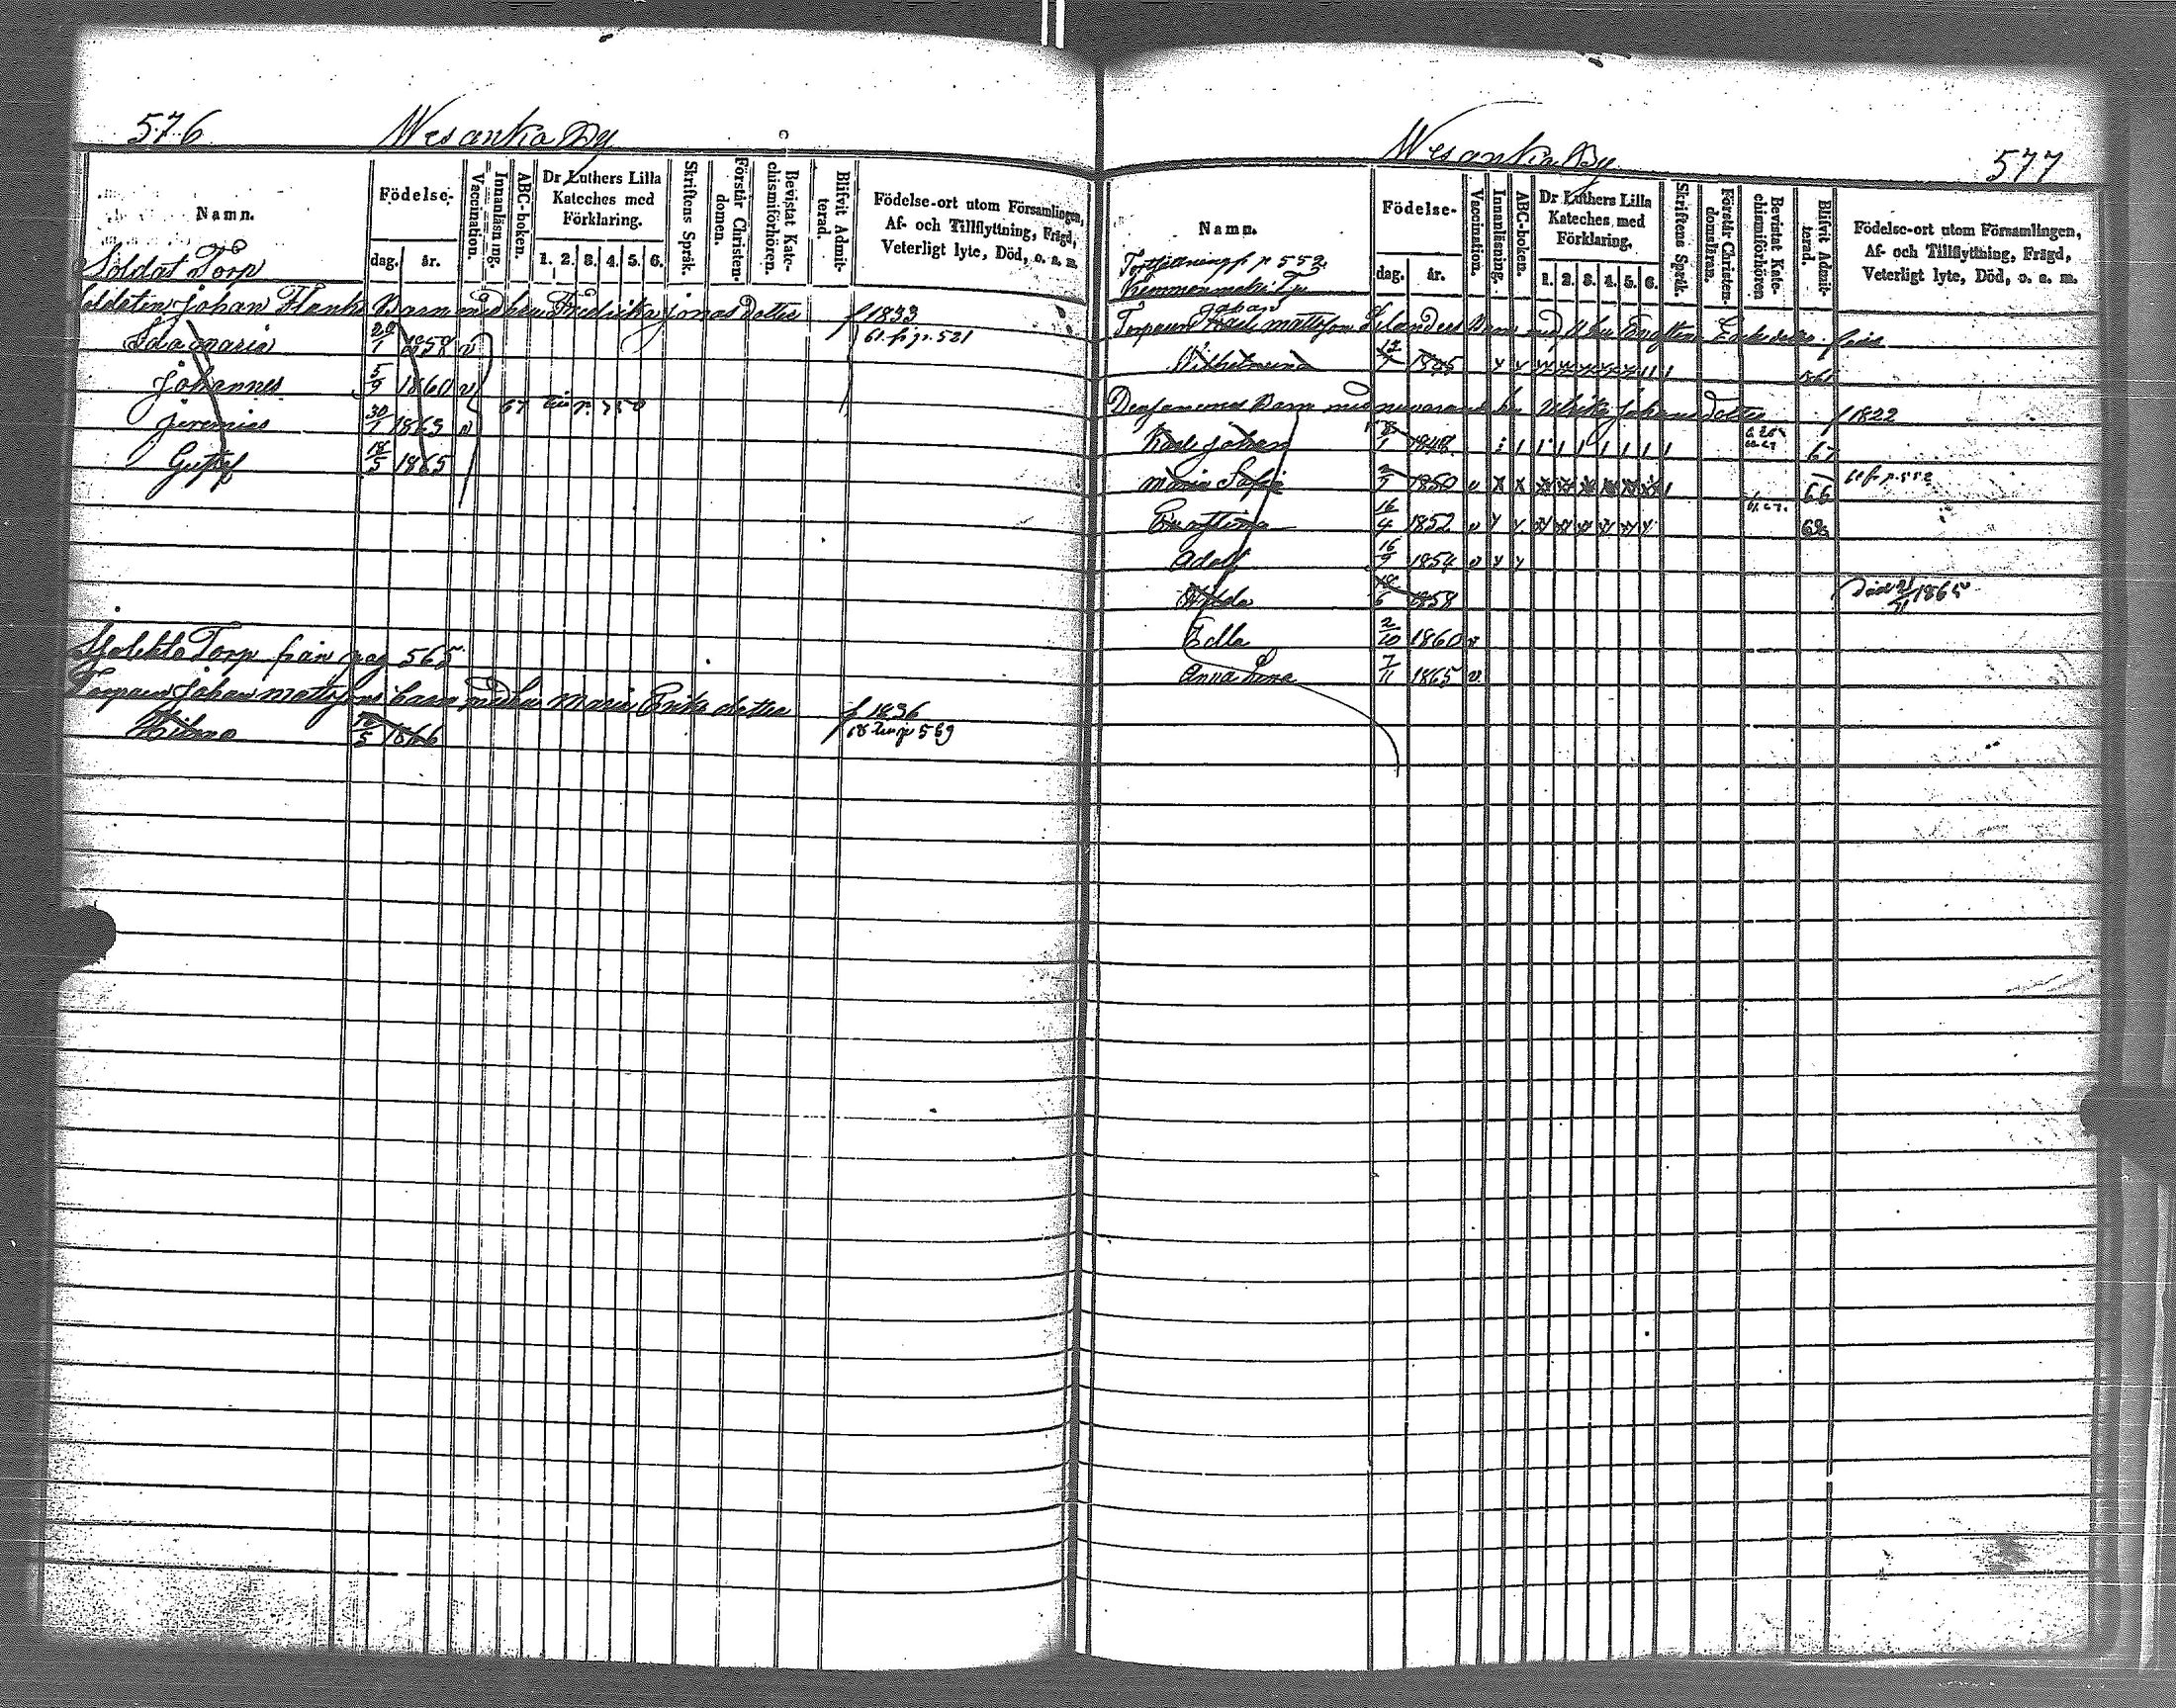 576
Wesanka By
Namn.
Födelse-
dag. år.
Vaccination.
Innanläsning.
ABC-boken.
Dr Luthers Lilla
Kateches med
Förklaring.
1. 2. 3. 4. 5. 6.
Skriftens Språk.
Förstår Christen-
domen.
Bevistat Kate-
chismiförhören.
Blifvit Admit-
terad.
Födelse-ort utom Församlingen,
Af- och Tillflyttning, Frägd,
Veterligt lyte, Död, o. s. m.
Soldat Torp
Soldaten Johan Flanks Barn med hu Fredrika Jonas dotter f 1833
Ida Maria 20/1 1858 v 61 fr p. 521
Johannes 5/9 1860 v
67 till p. 750
Jeremias 30/1 1863 v
Gustaf 18/5 1865
Torp från pag 565
Torparen Johan Mattssons barn med hu Maria Eriks dotter f 1836
10/5 1866 68 till p 569
Wesanka By
577
Namn.
Födelse-
dag. år.
Vaccination.
Innanläsning.
ABC-boken.
Dr Luthers Lilla
Kateches med
Förklaring.
1. 2. 3. 4. 5. 6.
Skriftens Språk.
Förstår Christen-
domsläran.
Bevistat Kate-
chismiförhören
Blifvit Admit-
terad.
Födelse-ort utom Församlingen,
Af- och Tillflyttning, Frägd,
Veterligt lyte, Död, o. s. m.
p 552
Johan
Torparen Mattsson Barn med
Wilhelmina 1845 1861
Barn med nuvarande hu Ulrika Johans dotter f 1822
Karl Johan 1848 67
Maria Sofia 1850 v 66 61 fr p. 552
16/4 1852 v 68
Adolf 16/9 1854 v
Hilda 1858 Död 1865
Edla 2/10 1860 v
Anna Lena 7/11 1865 v.